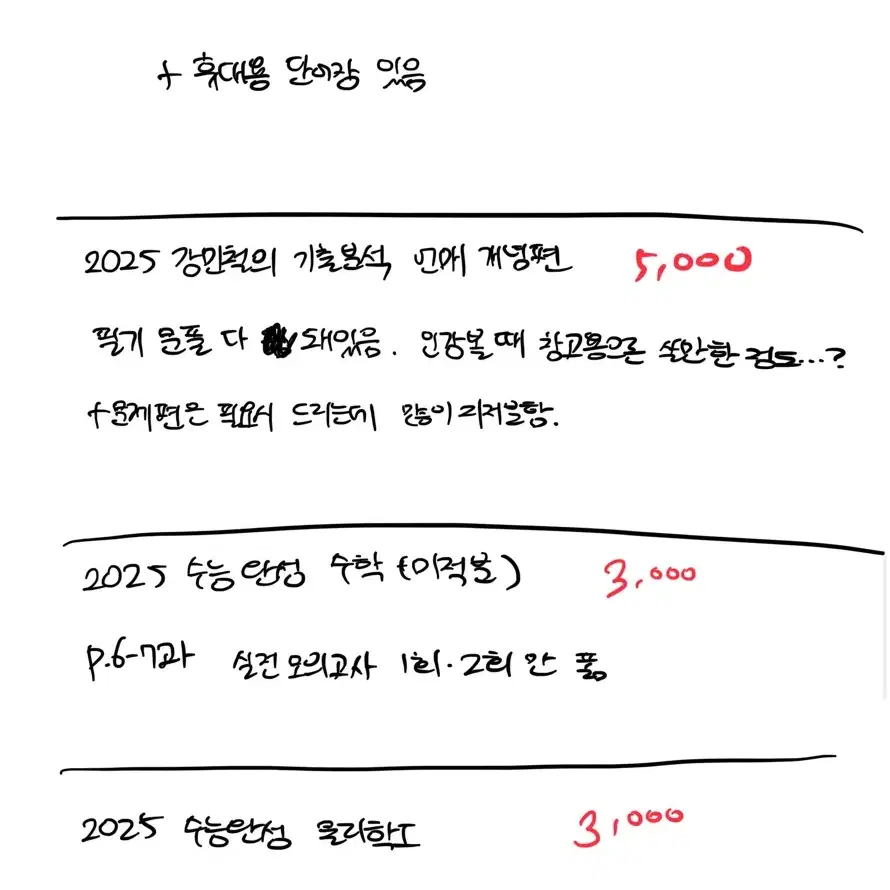 + 휴대용 단어장 있음
2025 강민철의 기출분석 언매 개념편 5,000
필기 문풀 다 돼있음. 인강볼 때 참고용으론 쏘완한 정도...?
+문제편은 필요시 드리는데 많이 지저분함.
2025 수능완성 수학 (미적분) 3,000
P.6-7과 실전모의고사 1회·2회 안 풂
2025 수능완성 물리학I 3,000